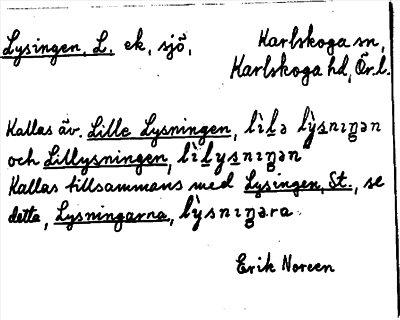 Lysingen, L. ek, sjö, Karlskoga sn,
Karlskoga hd, Ör.l.
Kallas äv. Lille Lysningen, lìlə lỳsnıŋən
och Lillysningen, lìlysnıŋən
Kallas tillsammans med Lysingen, St., se
detta, Lysningarna, lỳsnıŋəra.
Erik Noreen